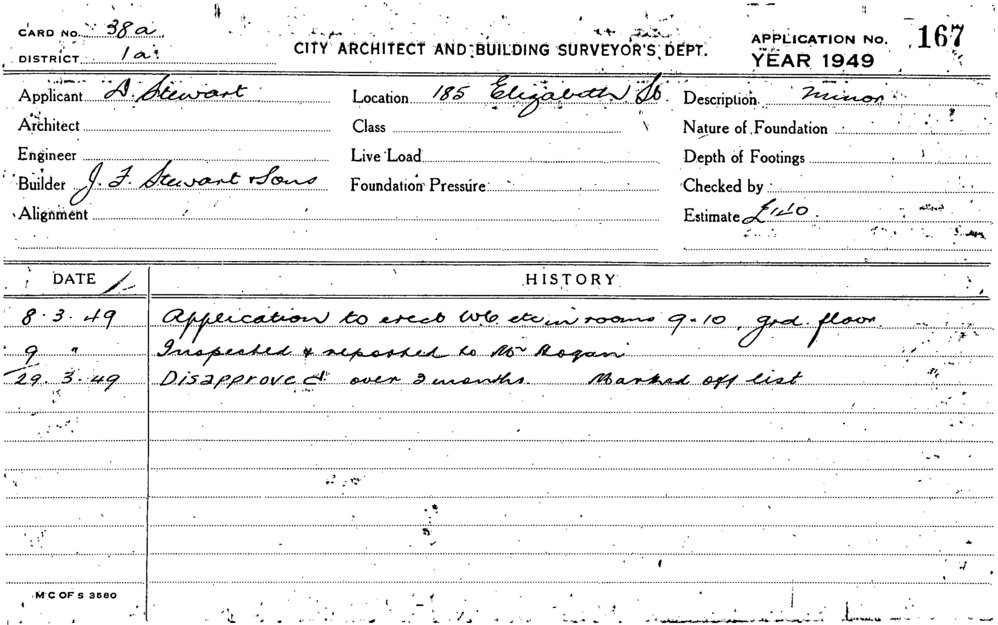 CARD No. 38a
CITY ARCHITECT AND BUILDING SURVEYOR'S DEPT.
APPLICATION No. 167
DISTRICT 1a
YEAR 1949
Applicant D. Stewart Location 185 Elizabeth St. Description Minor
Architect Class Nature of Foundation
Engineer Live Load Depth of Footings
Builder J. F. Stewart & Sons Foundation Pressure Checked by
Alignment Estimate
DATE HISTORY
8.3.49 Application to erect W.C. etc in rooms 9-10, grd. floor
9 " Inspected & reported to Mr Rogan
29.3.49 Disapproved over 2 months. Marked off list
M C OF S 3580